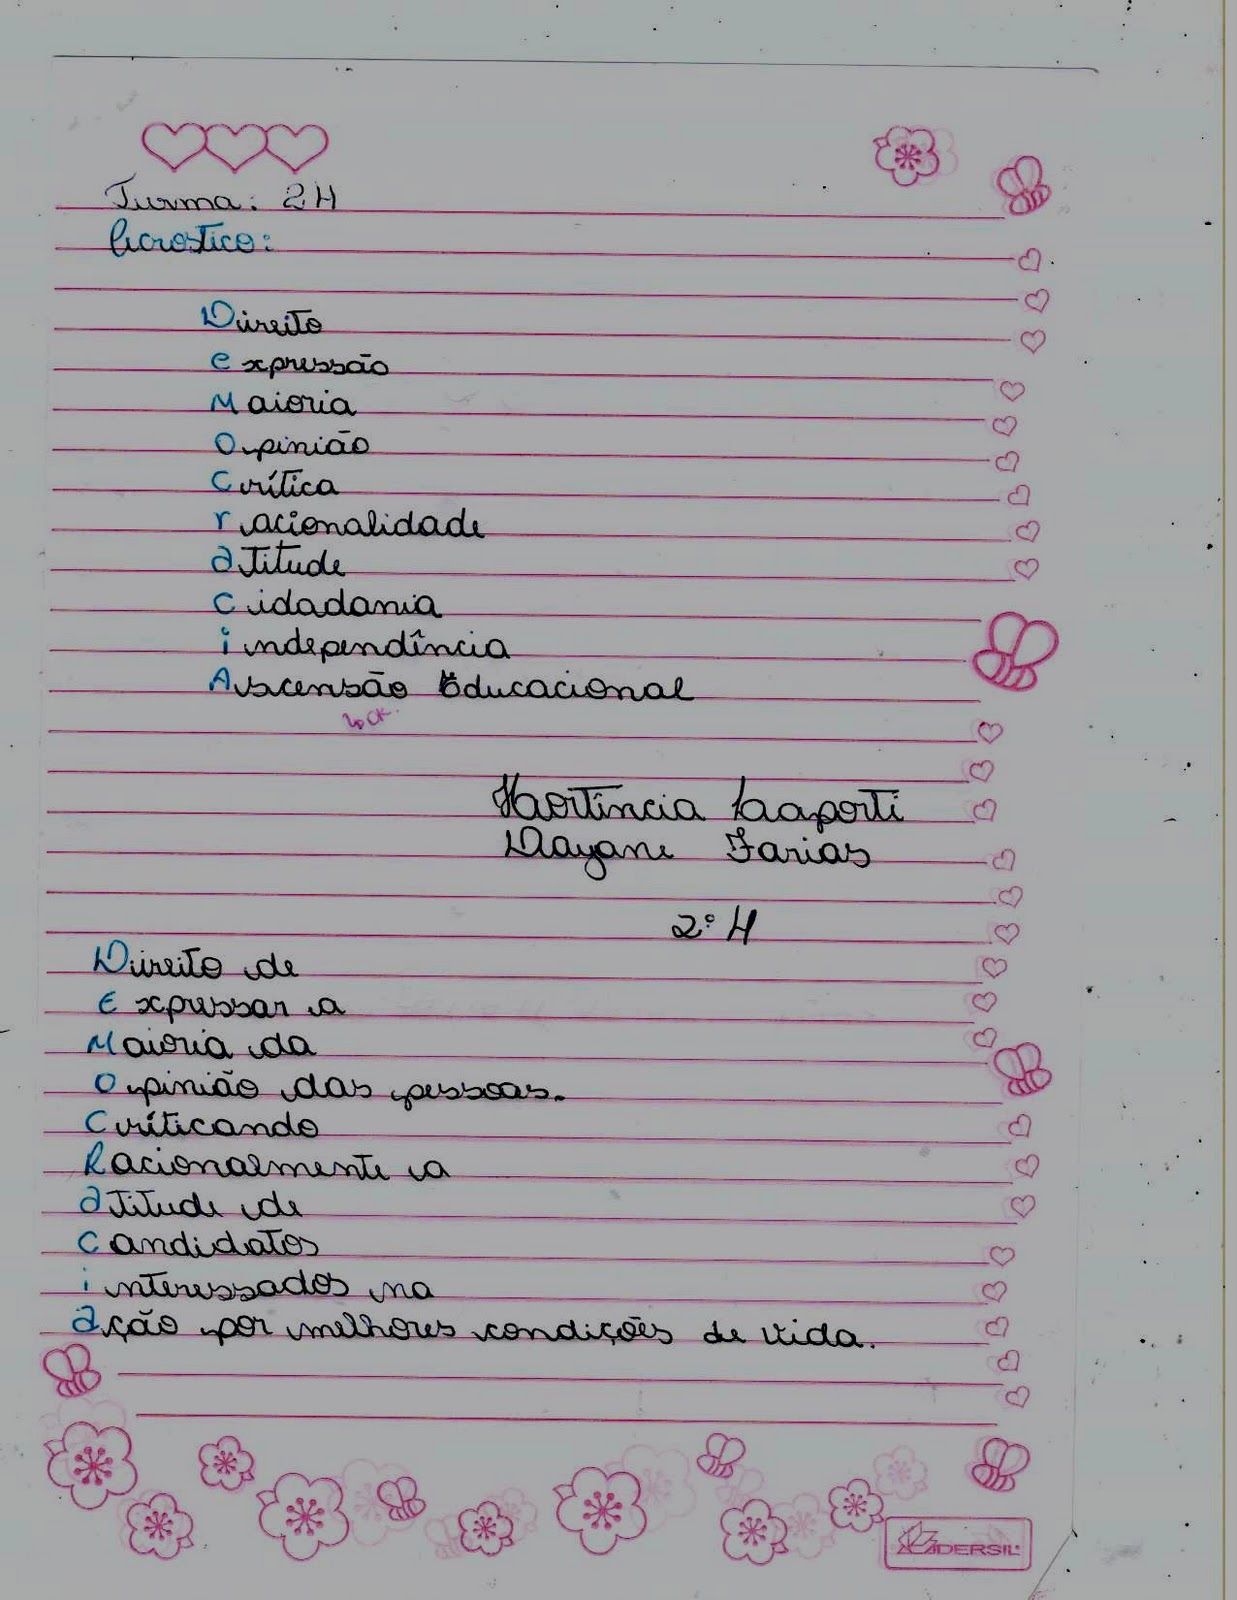 Turma: 2H
Acrostico:
Direito
expressão
Maioria
Opinião
Crítica
racionalidade
atitude
Cidadania
independência
Ascensão Educacional
Hortência Laporti
Dayane Farias
2º H
Direito de
Expressar a
Maioria da
Opinião das pessoas.
Críticando
Racionalmente a
atitude de
candidatos
interessados na
ação por melhores condições de vida.